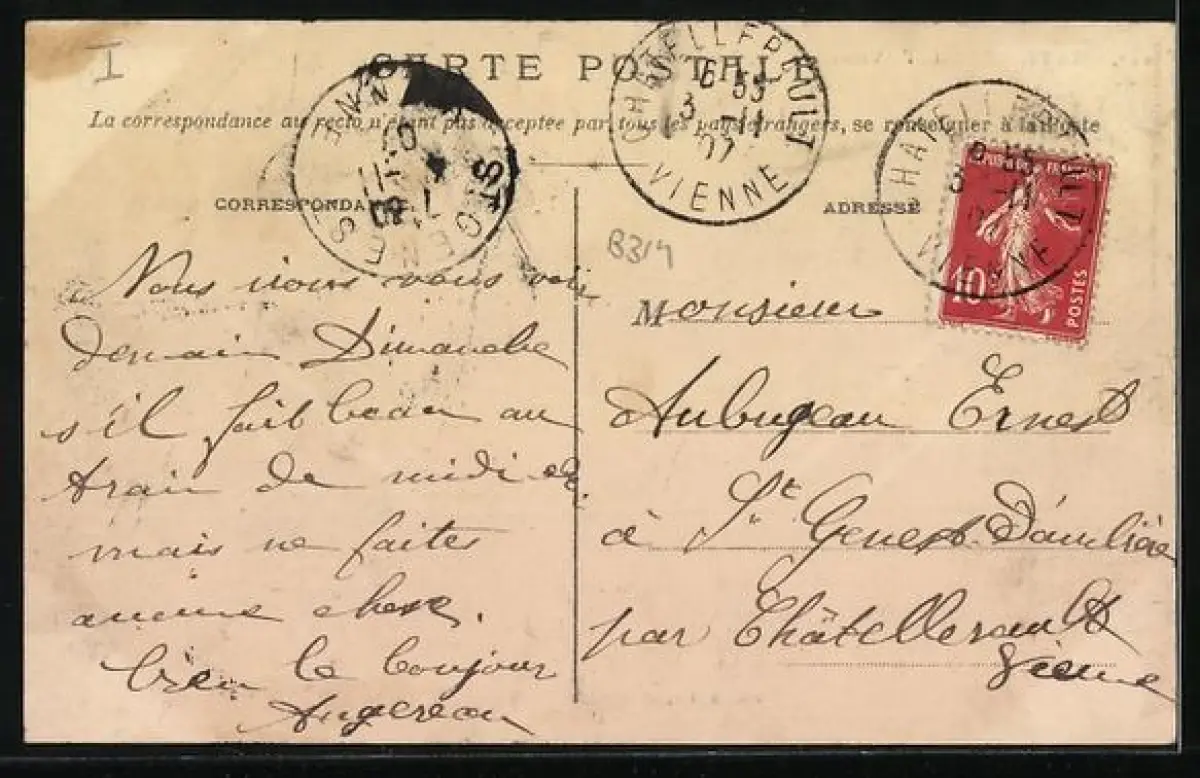 I
CARTE POSTALE
La correspondance au recto n'étant pas acceptée par tous les pays étrangers, se renseigner à la Poste
CHATELLERAULT
6 55
3 -11
07
VIENNE
CHATELLERAULT
6 55
3 -11
07
VIENNE
ST GENEST
VIENNE
CORRESPONDANCE
ADRESSE
B314
10
POSTES
Nous irons vous voir
demain Dimanche
s'il fait beau au
train de midi
mais ne faites
aucune chose.
bien le bonjour
Augereau
Monsieur
Aubugeau Ernest
à St Genest D'ambière
par Châtellerault
Vienne